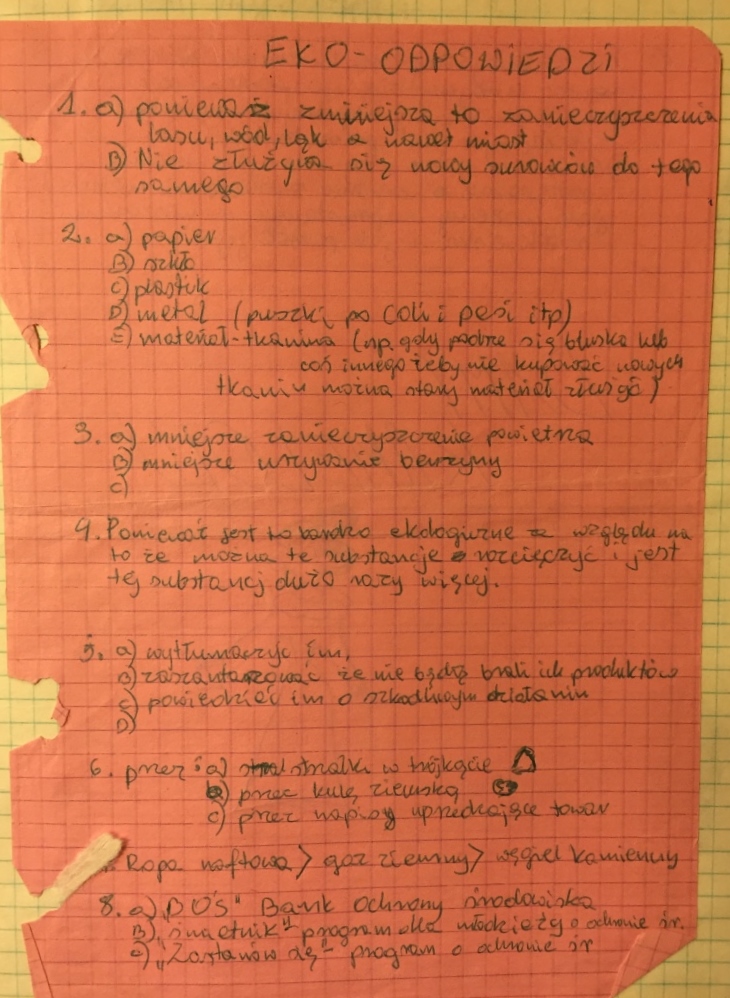 EKO-ODPOWIEDZI
1. a) ponieważ zmniejsza to zanieczyszczenia
lasu, wód, łąk a nawet miast
B) Nie złużywa się nowy surowców do tego
samego
2. a) papier
B) szkło
C) plastik
D) metal (puszki po Coli i pepsi itp)
E) materiał-tkanina (np. gdy podrze się bluska lub
coś innego żeby nie kupować nowych
tkanin można stary materiał złurzyć)
3. a) mniejsze zanieczyszczenie powietrza
B) mniejsze urzywanie benzyny
C)
4. Ponieważ jest to bardzo ekologiczne ze względu na
to że można te substancje rozcięczyć i jest
tej substancj dużo razy więcej.
5. a) wytłumaczyć im,
B) zaszantarzować że nie będę brali ich produktów
C) powiedzieć im o szkodliwym działaniu
D)
6. przez: a) strzałki w trójkącie
b) przez kulę ziemską
c) przez napisy uprzedające towar
Ropa naftowa > gaz ziemny > węgiel kamienny
8. a) „BOŚ" Bank Ochrony środowiska
B) program dla młodzieży o ochronie śr.
C) „Zastanów się" program o ochronie śr